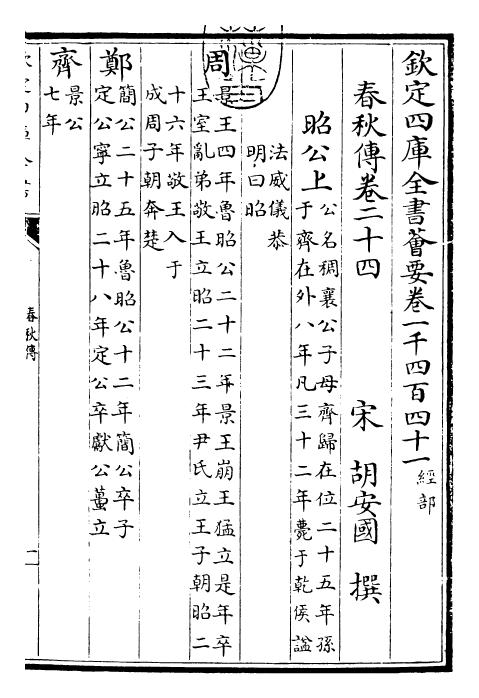 欽定四庫全書薈要卷一千四百四十一 經部
春秋傳卷二十四
宋 胡安國 撰
昭公上 公名稠襄公子母齊歸在位二十五年孫
于齊在外八年凡三十二年薨于乾侯諡
法威儀恭
明曰昭
周 景王四年魯昭公二十二年景王崩王猛立是年卒
王室亂弟敬王立昭二十三年尹氏立王子朝昭二
十六年敬王入于
成周子朝奔楚
鄭 簡公二十五年魯昭公十二年簡公卒子
定公寧立昭二十八年定公卒獻公蠆立
齊 景公
七年
春秋傳
一